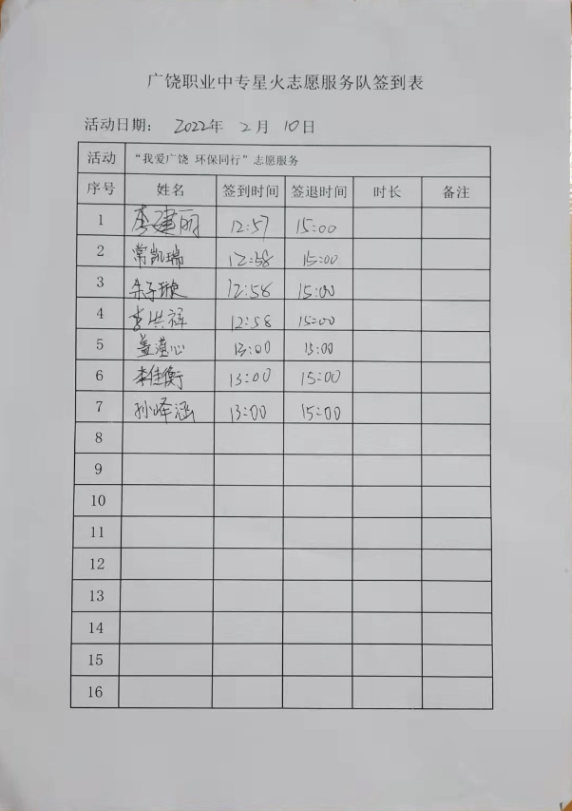 广饶职业中专星火志愿服务队签到表
活动日期： 2022年 2月 10日
活动 “我爱广饶 环保同行”志愿服务
序号 姓名 签到时间 签退时间 时长 备注
1 李建丽 12:57 15:00
2 常凯瑞 12:58 15:00
3 12:58 15:00
4 李洪祥 12:58 15:00
5 13:00 15:00
6 李佳衡 13:00 15:00
7 孙峄涵 13:00 15:00
8
9
10
11
12
13
14
15
16